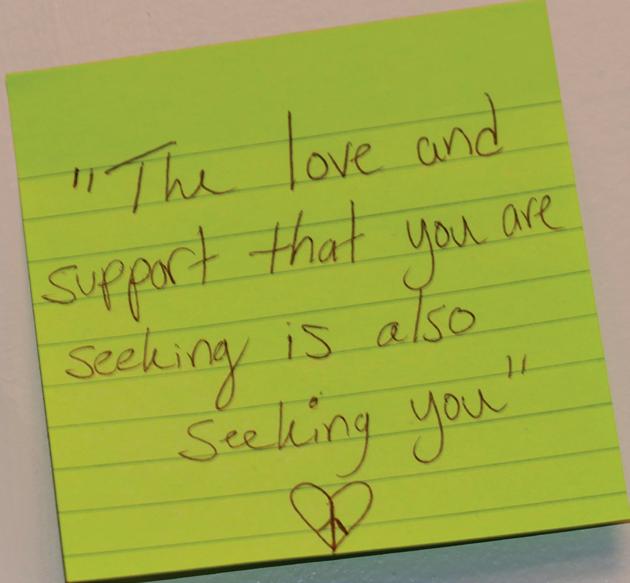 "The love and
support that you are
seeking is also
seeking you"